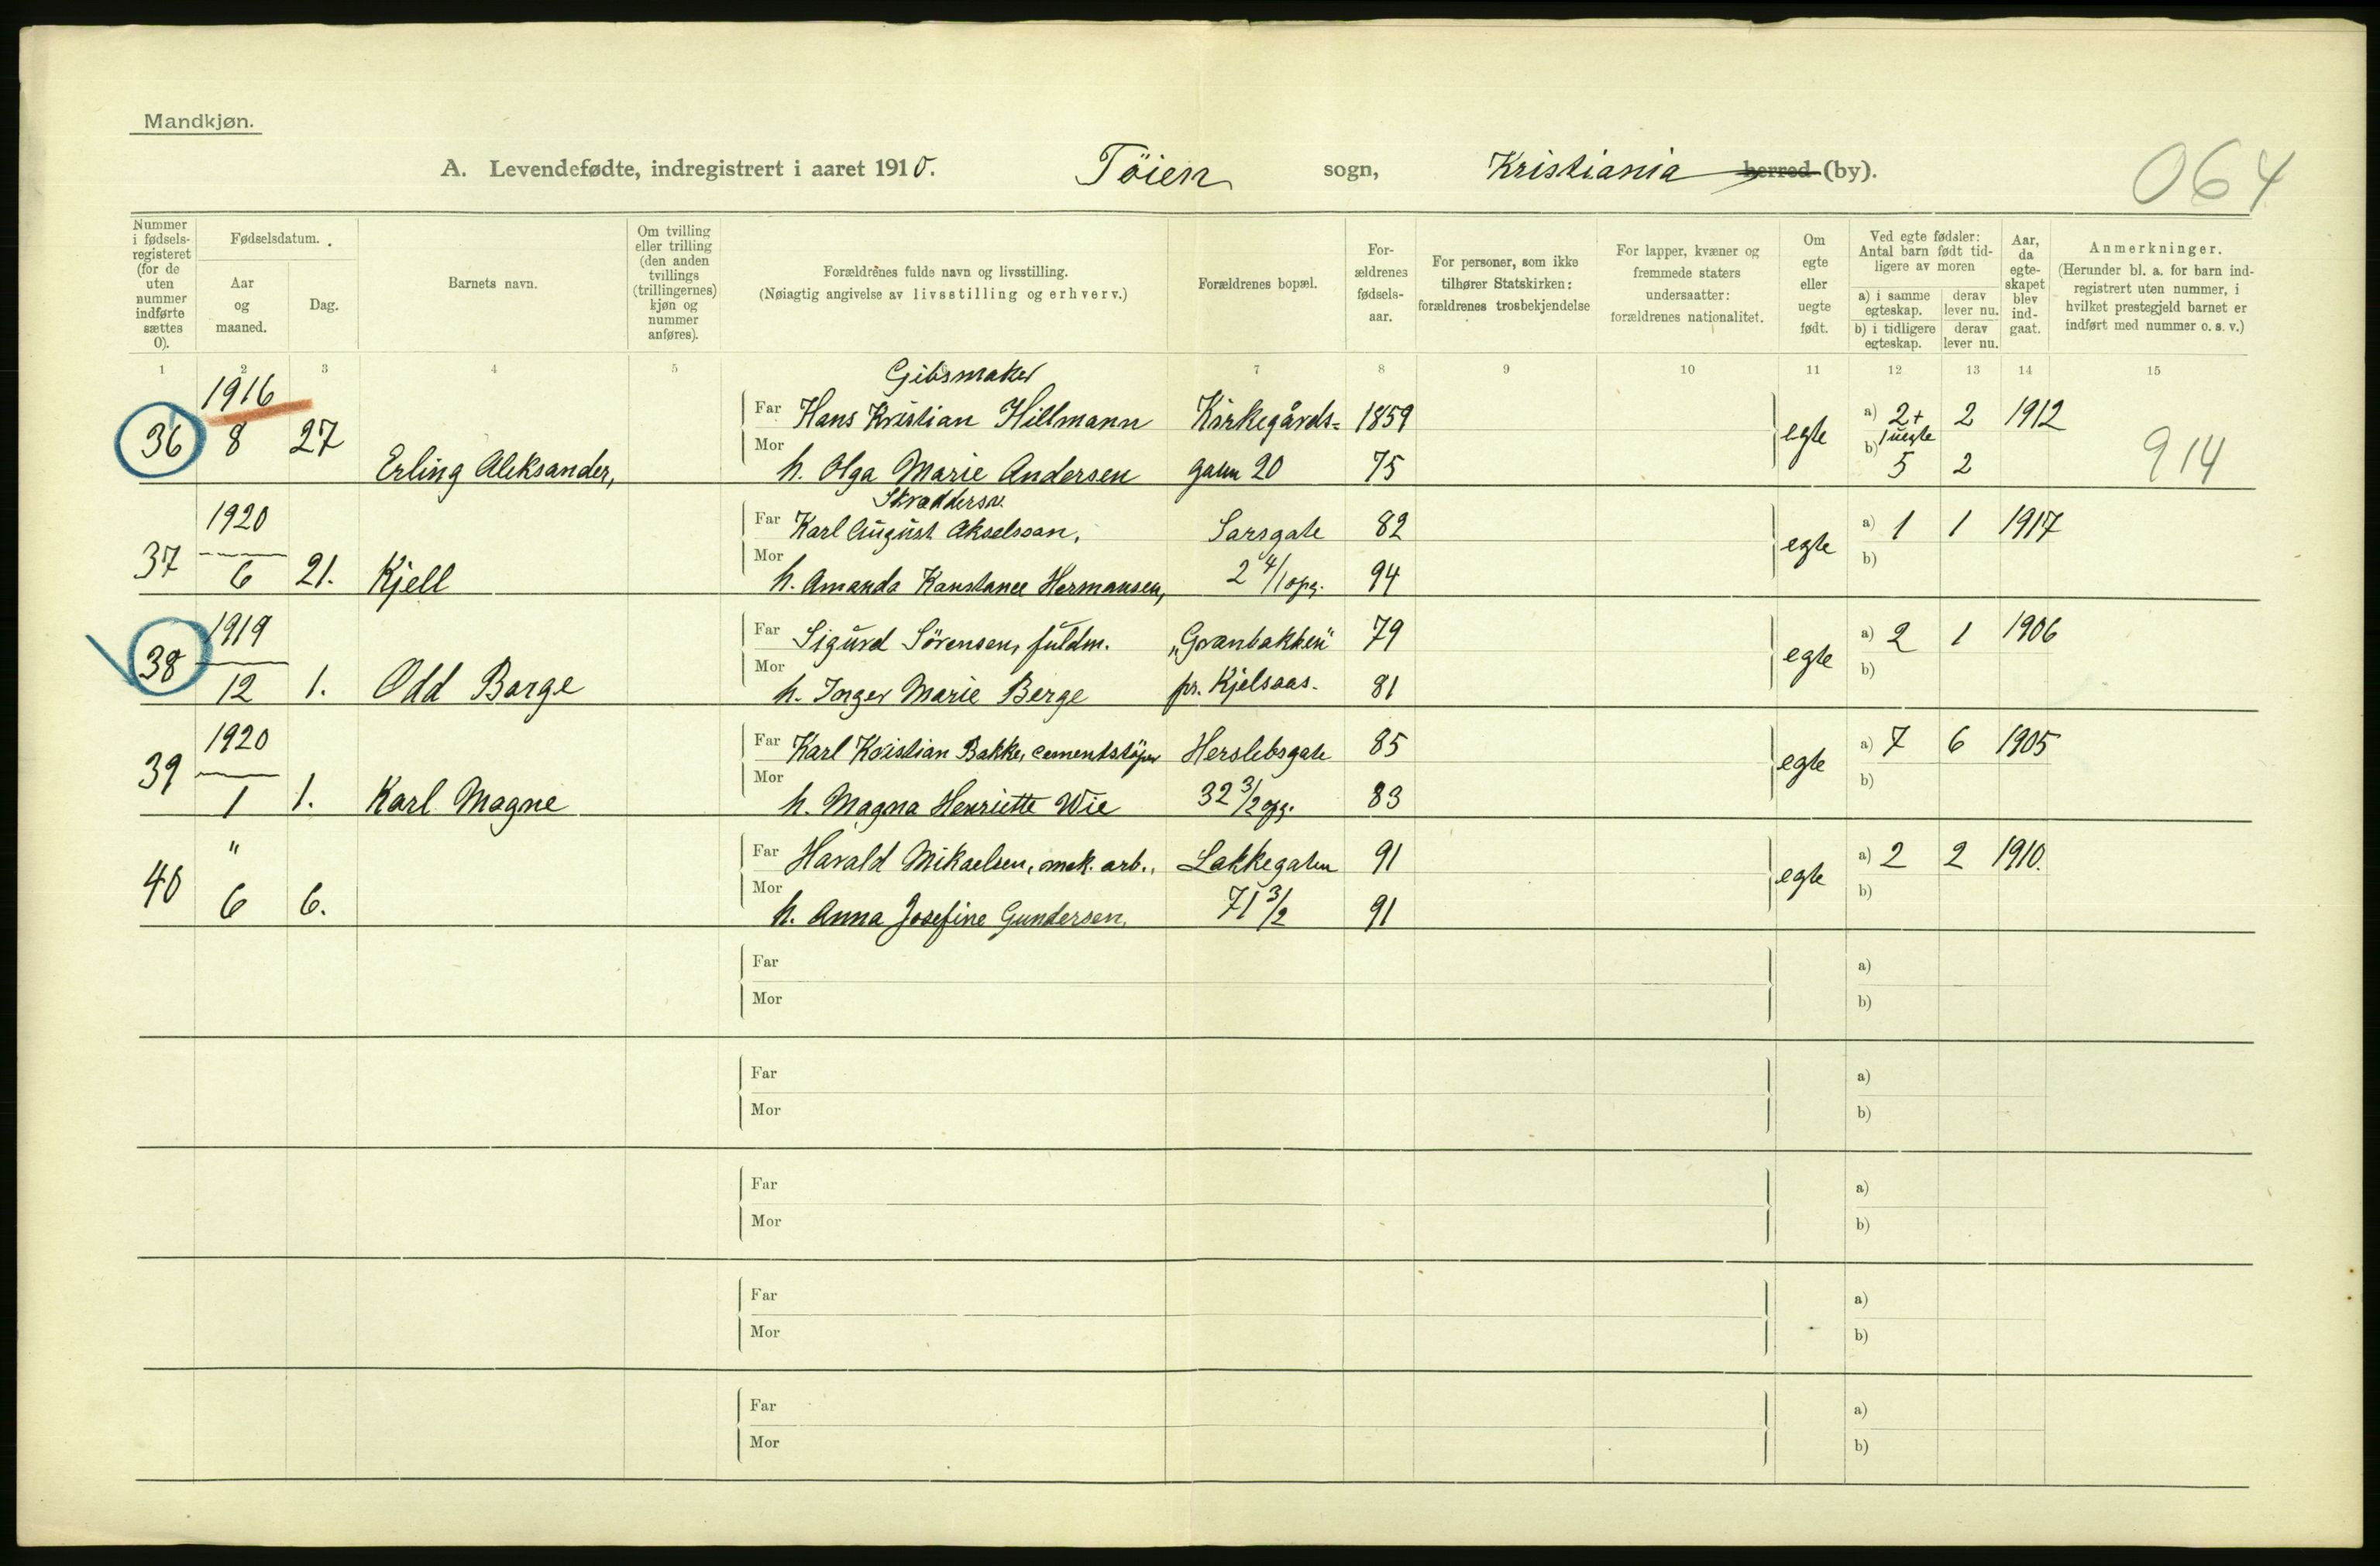 Mandkjøn.
A. Levendefødte, indregistrert i aaret 1910. Töien sogn, Kristiania herred (by).
064
Nummer i fødsels-registeret (for de uten nummer indførte sættes 0).
Fødselsdatum.
Aar og maaned.
Dag.
Barnets navn.
Om tvilling eller trilling (den anden tvillings (trillingernes) kjøn og nummer anføres).
Forældrenes fulde navn og livsstilling.
(Nøiagtig angivelse av livsstilling og erhverv.)
Forældrenes bopæl.
For-ældrenes fødsels-aar.
For personer, som ikke tilhører Statskirken: forældrenes trosbekjendelse
For lapper, kvæner og fremmede staters undersaatter: forældrenes nationalitet.
Om egte eller uegte født.
Ved egte fødsler: Antal barn født tid-ligere av moren
a) i samme egteskap.
derav lever nu.
b) i tidligere egteskap.
derav lever nu.
Aar, da egte-skapet blev ind-gaat.
Anmerkninger.
(Herunder bl. a. for barn ind-registrert uten nummer, i hvilket prestegjeld barnet er indført med nummer o. s. v.)
1 2 3 4 5 7 8 9 10 11 12 13 14 15
1916 Gibsmaker
36 8 27 Far Hans Kristian Hillmann Kirkegårds= 1859 egte a) 2+ 2 1912
1 uegte
Erling Aleksander, Mor h. Olga Marie Andersen gaten 20 75 b) 5 2 914
Skræddersv.
1920 Far Karl August Akselssan, Sarsgate 82 egte a) 1 1 1917
37 6 21. Kjell Mor h. Amanda Konstance Hermansen, 2 4/1 opg. 94 b)
1919 Far Sigurd Sörensen, fuldm. „Granbakken" 79 egte a) 2 1 1906
38 12 1. Odd Borge Mor h. Inger Marie Berge pr. Kjelsaas. 81 b)
1920 Far Karl Kristian Bakke, cementstöper Herslebsgate 85 egte a) 7 6 1905
39 1 1. Karl Magne Mor h. Magna Henriette Wie 32 3/2 opg. 83 b)
" Far Harald Mikaelsen, mek. arb., Lakkegaten 91 egte a) 2 2 1910.
40 6 6. Mor h. Anna Josefine Gundersen, 71 3/2 91 b)
Far a)
Mor b)
Far a)
Mor b)
Far a)
Mor b)
Far a)
Mor b)
Far a)
Mor b)